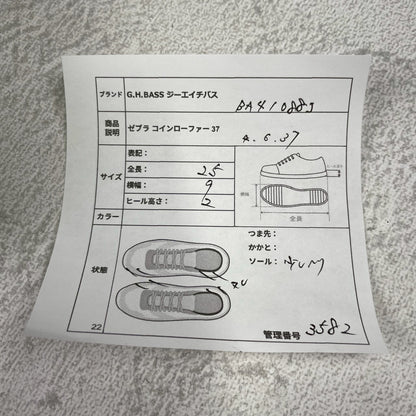 ブランド G.H.BASS ジーエイチバス BA410885
商品説明 ゼブラ コインローファー 37 4.6.37
サイズ
表記：
全長： 25
横幅： 9
ヒール高さ： 2
ヒール高さ
横幅
全長
カラー
状態
つま先：
かかと：
ソール：
22
管理番号 3582